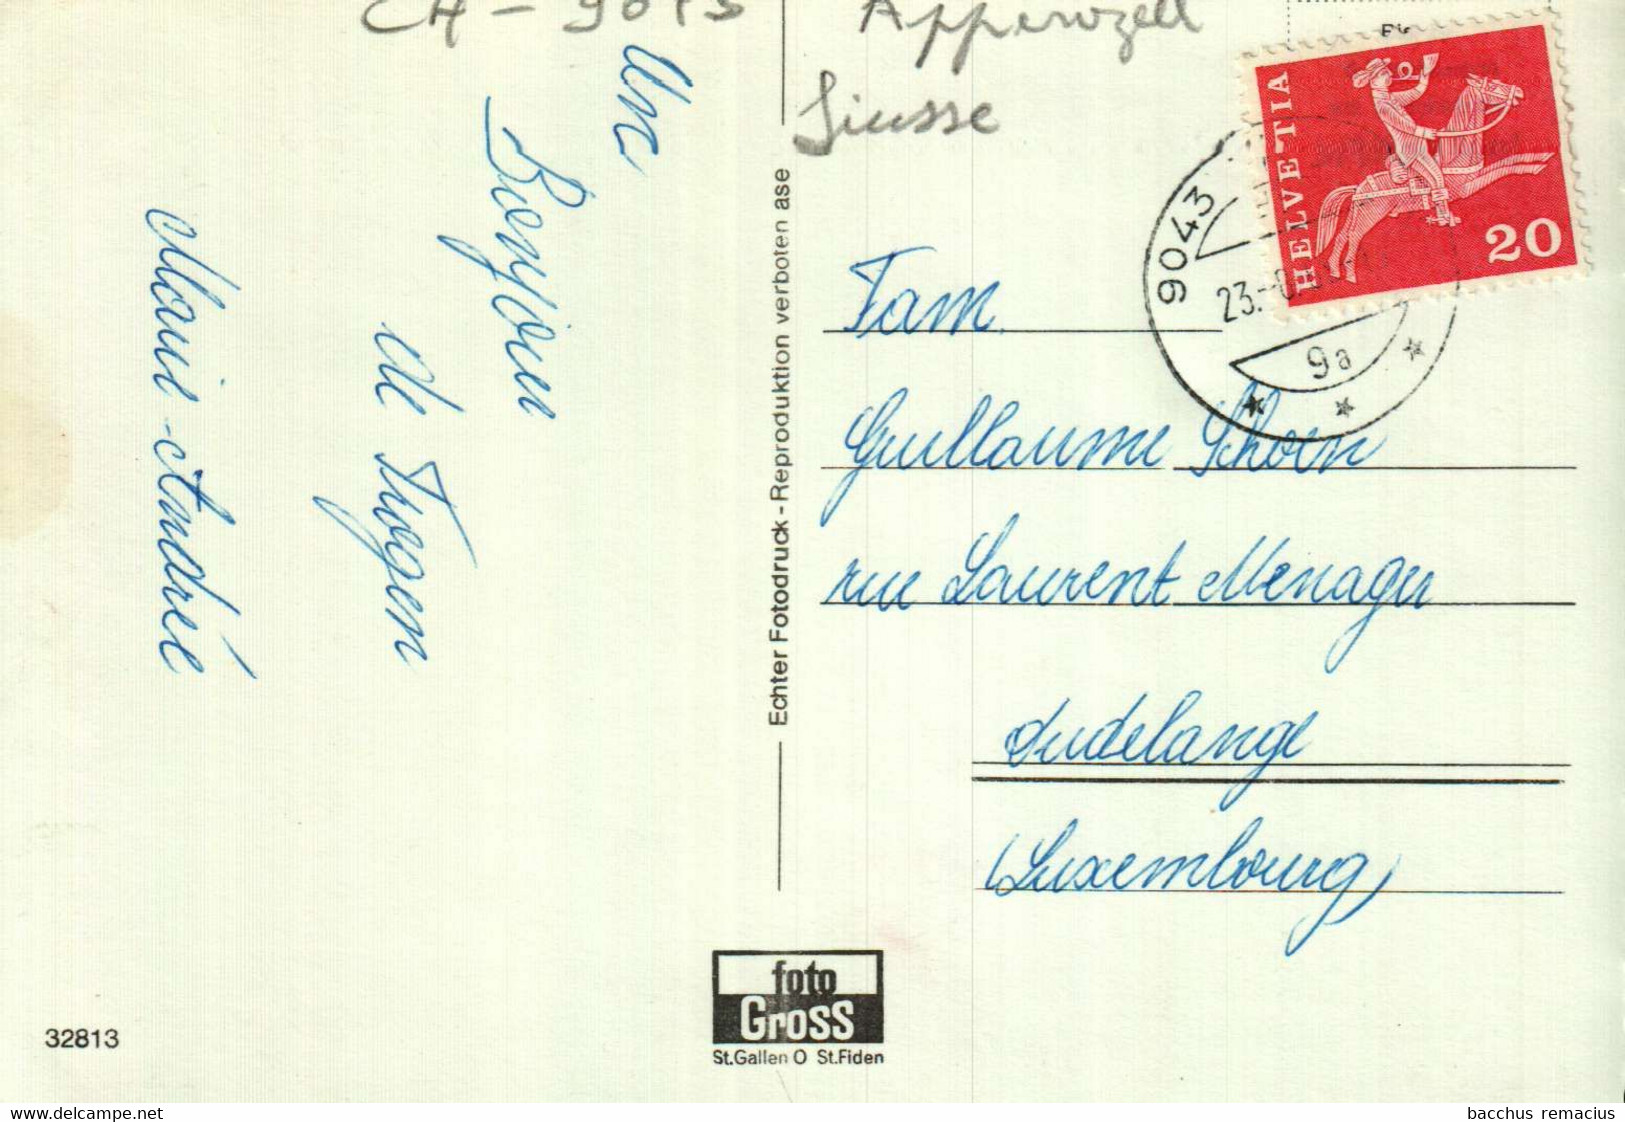 CH - 9043
Appenzell
Siusse
Un
Bonjour
de Trogen
Marie-Andrée
Echter Fotodruck - Reproduktion verboten ase
HELVETIA
20
9043
23.
9a
Fam.
Guillaume Schoen
rue Laurent Menager
Dudelange
(Luxembourg)
foto
Gross
St.Gallen O St.Fiden
32813
www.delcampe.net
bacchus remacius